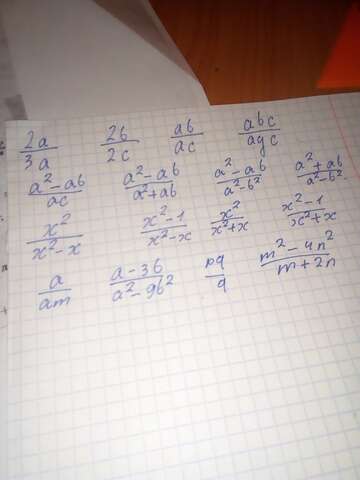 2a/3a 2b/2c ab/ac abc/ayc
a²-ab/ac a²-ab/a²+ab a²-ab/a²-b² a²+ab/a²-b²
x²/x²-x x²-1/x²-x x²/x²+x x²-1/x²+x
a/am a-3b/a²-9b² pq/q m²-4n²/m+2n